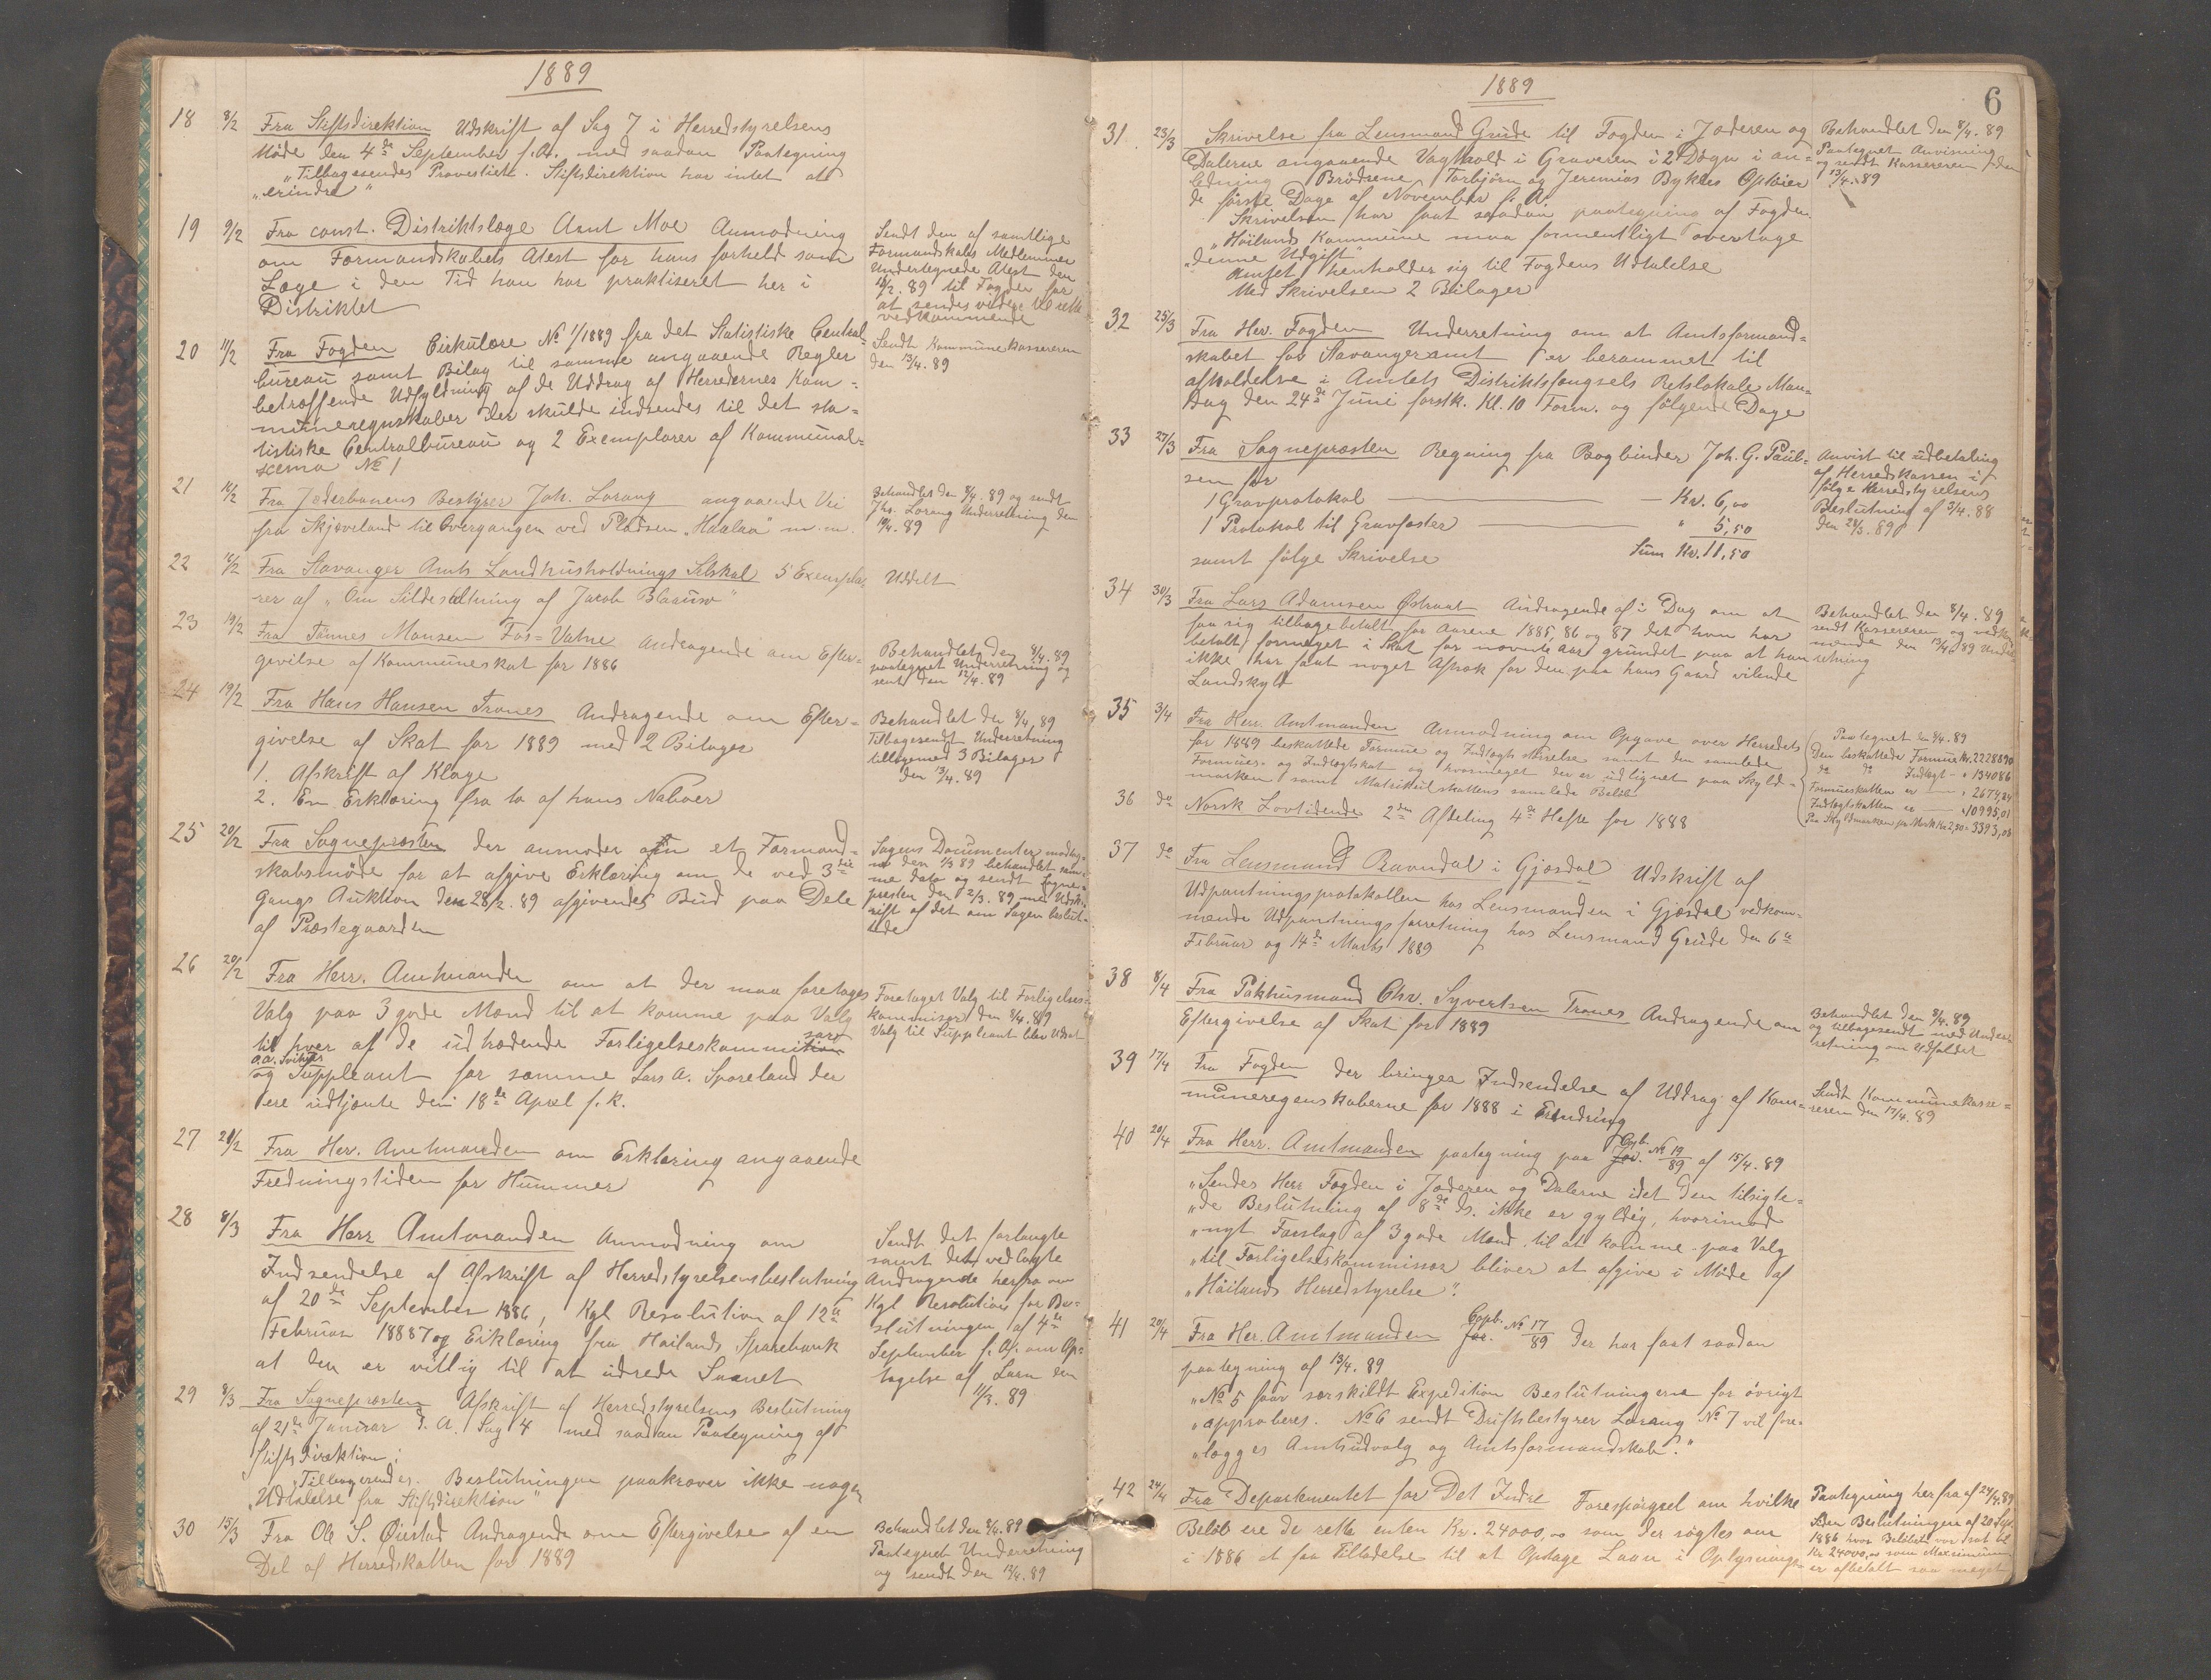 1889
18 8/2 Fra Stiftsdirektion Udskrift af Sag 7 i Herredstyrelsens
Møde den 4de September f.A. med saadan Paategning
"Tilbagesendes Provestiet. Stiftsdirektion har intet at
"erindre"
19 9/2 Fra const. Distriktslæge Asmt Moe Anmodning
om Formandskabets Atest for hans forhold som
Læge i den Tid han har praktiseret her i
Distriktet
Sendt den af samtlige
Formandskabs Medlemmer
Undertegnede Atest den
/2. 89 til Fogden for
at sendes videre til rette
vedkommende
20 11/2 Fra Fogden Cirkulære No 1/1889 fra det Statistiske Central-
bureau samt Bilag til samme angaaende Regler
betræffende Udfyldning af de Uddrag af Herredernes Kom-
muneregnskaber der skulde indsendes til det sta-
tistiske Centralbureau og 2 Exemplarer af Kommunal-
scema No 1
Sendt Kommunekassereren
den 13/4. 89
21 16/2 Fra Jæderbanens Bestyrer Joh. Lorang angaaende Vei
fra Skjæveland til Overgangen ved Pladsen "Haalaa" m.m.
Behandlet den 8/4. 89 og sendt
Jhs. Lorang Underretning den
/4. 89
22 16/2 Fra Stavanger Amts Landhusholdnings Selskab 5 Exempla-
rer af "Om Sildesaltning af Jacob Blaauw"
Uddelt
23 19/2 Fra Tönnes Monsen Fos-Vatne Andragende om Efter-
givelse af Kommuneskat for 1886
Behandlet den 8/4. 89
paategnet Underretning og
sent den 12/4. 89
24 19/2 Fra Hans Hansen Trones Andragende om Efter-
givelse af Skat for 1889 med 2 Bilager
1. Afskrift af Klage
2. En Erklæring fra to af hans Naboer
Behandlet den 8/4. 89
Tilbagesendt Underretning
tilligemed 3 Bilager
den 13/4. 89
25 20/2 Fra Sognepræsten der anmoder om et Formand-
skabsmøde for at afgive Erklæring om de ved 3die
Gangs Auktion den 28/2. 89 afgivendes Bud paa Dele
af Præstegaarden
Sagens Documenter modtag-
ne den 1/3 89 behandlet sam-
me dato og sendt Sogne-
presten den 2/3. 89 med Udsk-
rift af det om Sagen beslut-
tede
26 20/2 Fra Herr. Amtmanden om at der maa foretages
Valg paa 3 gode Mænd til at komme paa Valg
til hver af de udtrædende Forligelseskommissær
og Suppleant for samme Lars A. Sporeland der
ere udtjente den 18de April f.k.
Foretaget Valg til Forligelses-
kommisær den 8/4. 89
Valg til Suppleant blev Udsat
27 21/2 Fra Her. Amtmanden om Erklæring angaaende
Fredningstiden for Hummer
28 8/3 Fra Herr Amtmanden Anmodning om
Indsendelse af Afskrift af Herredstyrelsens beslutning
af 20de September 1886, Kgl Resolution af 12te
Februar 1887 og Erklæring fra Høilands Sparebank
at den er villig til at udrede Laanet
Sendt det forlangte
samt det vedlagte
Andragende herfra om
Kgl Resolution for Be-
slutningen af 4de
September f.A. om Op-
tagelse af Laan den
11/3. 89
29 8/3 Fra Sognepræsten Afskrift af Herredstyrelsens Beslutning
af 21de Januar d.A. Sag 4 med saadan Paategning af
Stiftsdirektion:
"Tilbagesendes. Beslutningen paakræver ikke nogen
"Udtalelse fra Stiftsdirektion"
30 15/3 Fra Ole S. Øustad Andragende om Eftergivelse af en
Del af Herredskatten for 1889
Behandlet den 8/4. 89
Paategnet Underretning
og sendt den 13/4. 89
1889
6
31 23/3 Skrivelse fra Lensmand Grude til Fogden i Jæderen og
Dalerne angaaende Vagthold i Graveren i 2 Døgn i an-
ledning Brødrene Torbjörn og Jeremias Bykles Optøier
de første Dage af November f.A.
Skrivelsen har faat saadan paategning af Fogden
"Höilands Kommune maa formentligt overtage
"denne Udgift"
Amtet henholder sig til Fogdens Udtalelse
Med Skrivelsen 2 Bilager
Behandlet den 8/4. 89
Paategnet Anvisning
og sendt Kassereren den
13/4. 89
32 25/3 Fra Her. Fogden Underretning om at Amtsformand-
skabet for Stavanger amt er berammet til
afholdelse i Amtets Distriktsfængsels Retslokale Man-
dag den 24de Juni forstk. Kl. 10 Form. og følgende Dage
33 27/3 Fra Sognepræsten Regning fra Bogbinder Joh. G. Paul-
sen for
1 Gravprotokol — Kr. 6,00
1 Protokol til Gravfæster — " 5,50
Sum Kr. 11,50
samt følge Skrivelse
Anvist til udbetaling
af Herredskassen i
følge Herredstyrelsens
Beslutning af 3/4. 88
den 28/3. 89
34 30/3 Fra Lars Adamsen Østraat Andragende af i Dag om at
faa sig tilbagebetalt for Aarene 1885, 86 og 87 det han har
betalt formeget i Skat for nævnte Aar grundet paa at han
ikke har faat noget Afslak for den paa hans Gaard vilende
Landskyld
Behandlet den 8/4. 89
sendt Kassereren og vedkom-
mende den 13/4. 89 Under-
retning
35 3/4 Fra Herr. Amtmanden Anmodning om Opgave over Herredets
for 1889 beskattede Formue og Indtægts størrelse samt den samlede
Formues- og Indtægtskat og hvormeget der er udlignet paa Skyld-
marken samt Matrikulskattens samlede Beløb
Paategnet den 8/4. 89
Den beskattede Formue Kr. 2228890
do do Indtægt - " 134086
Formueskatten er — " 2674,24
Indtægtskatten er — " 10995,01
Paa Skyldmarken pr. Mark Kr 2,50 = 3393,08
36 do Norsk Lovtidende 2den Afdeling 4de Hefte for 1888
37 do Fra Lensmand Ravndal i Gjæsdal Udskrift af
Udpantningsprotokollen hos Lensmanden i Gjæsdal vedkom-
mende Udpantningsforretning hos Lensmand Grude den 6te
Februar og 14de Marts 1889
38 8/4 Fra Pakhusmand Chr. Syvertsen Trones Andragende om
Eftergivelse af Skat for 1889
Behandlet den 8/4. 89
og tilbagesendt med Under-
retning om Udfaldet
39 17/4 Fra Fogden der bringer Indsendelse af Uddrag af Kom-
muneregnskaberne for 1888 i Erindring
Sendt Kommunekasse-
reren den 17/4. 89
40 20/4 Fra Herr. Amtmanden paategning paa Copb. No 19/89 af 15/4. 89
"Sendes Herr Fogden i Jæderen og Dalerne idet den tilsigte-
"de Beslutning af 8de ds. ikke er gyldig, hvorimod
"nyt Forslag af 3 gode Mænd til at komme paa Valg
"til Forligelseskommissær bliver at afgive i Møde af
"Höilands Herredstyrelse".
41 20/4 Fra Her. Amtmanden Copb. No 17/89 der har faat saadan
paategning af 13/4. 89
"No 5 faar særskildt Expedition Beslutningerne for övrigt
"approberes. No 6 sendt Driftsbestyrer Lorang No 7 vil fore-
"lægges Amtsudvalg og Amtsformandskab."
42 24/4 Fra Departementet for Det Indre Forespørgsel om hvilke
Beløb ere de rette enten Kr. 24000,00 som der søgtes om
i 1886 at faa Tilladelse til at Optage Laan i Oplysnings-
Paategning herfra af 24/4 89
Siden Beslutningen af 20 Sept.
1886 hvor Beløbet var sat til
Kr 24000,00 som Maximum
er afbetalt saa meget